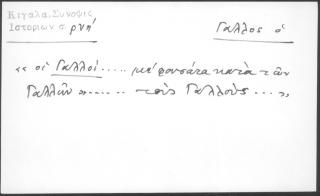 Κιγαλα, Συνοψις
Ιστοριων σ. ρνή
Γάλλος ὁ
«οἱ Γάλλοι..... μὲ φουσάτα κατὰ τῶν
Γαλλῶν»...... τοὺς Γαλλοὺς...»,